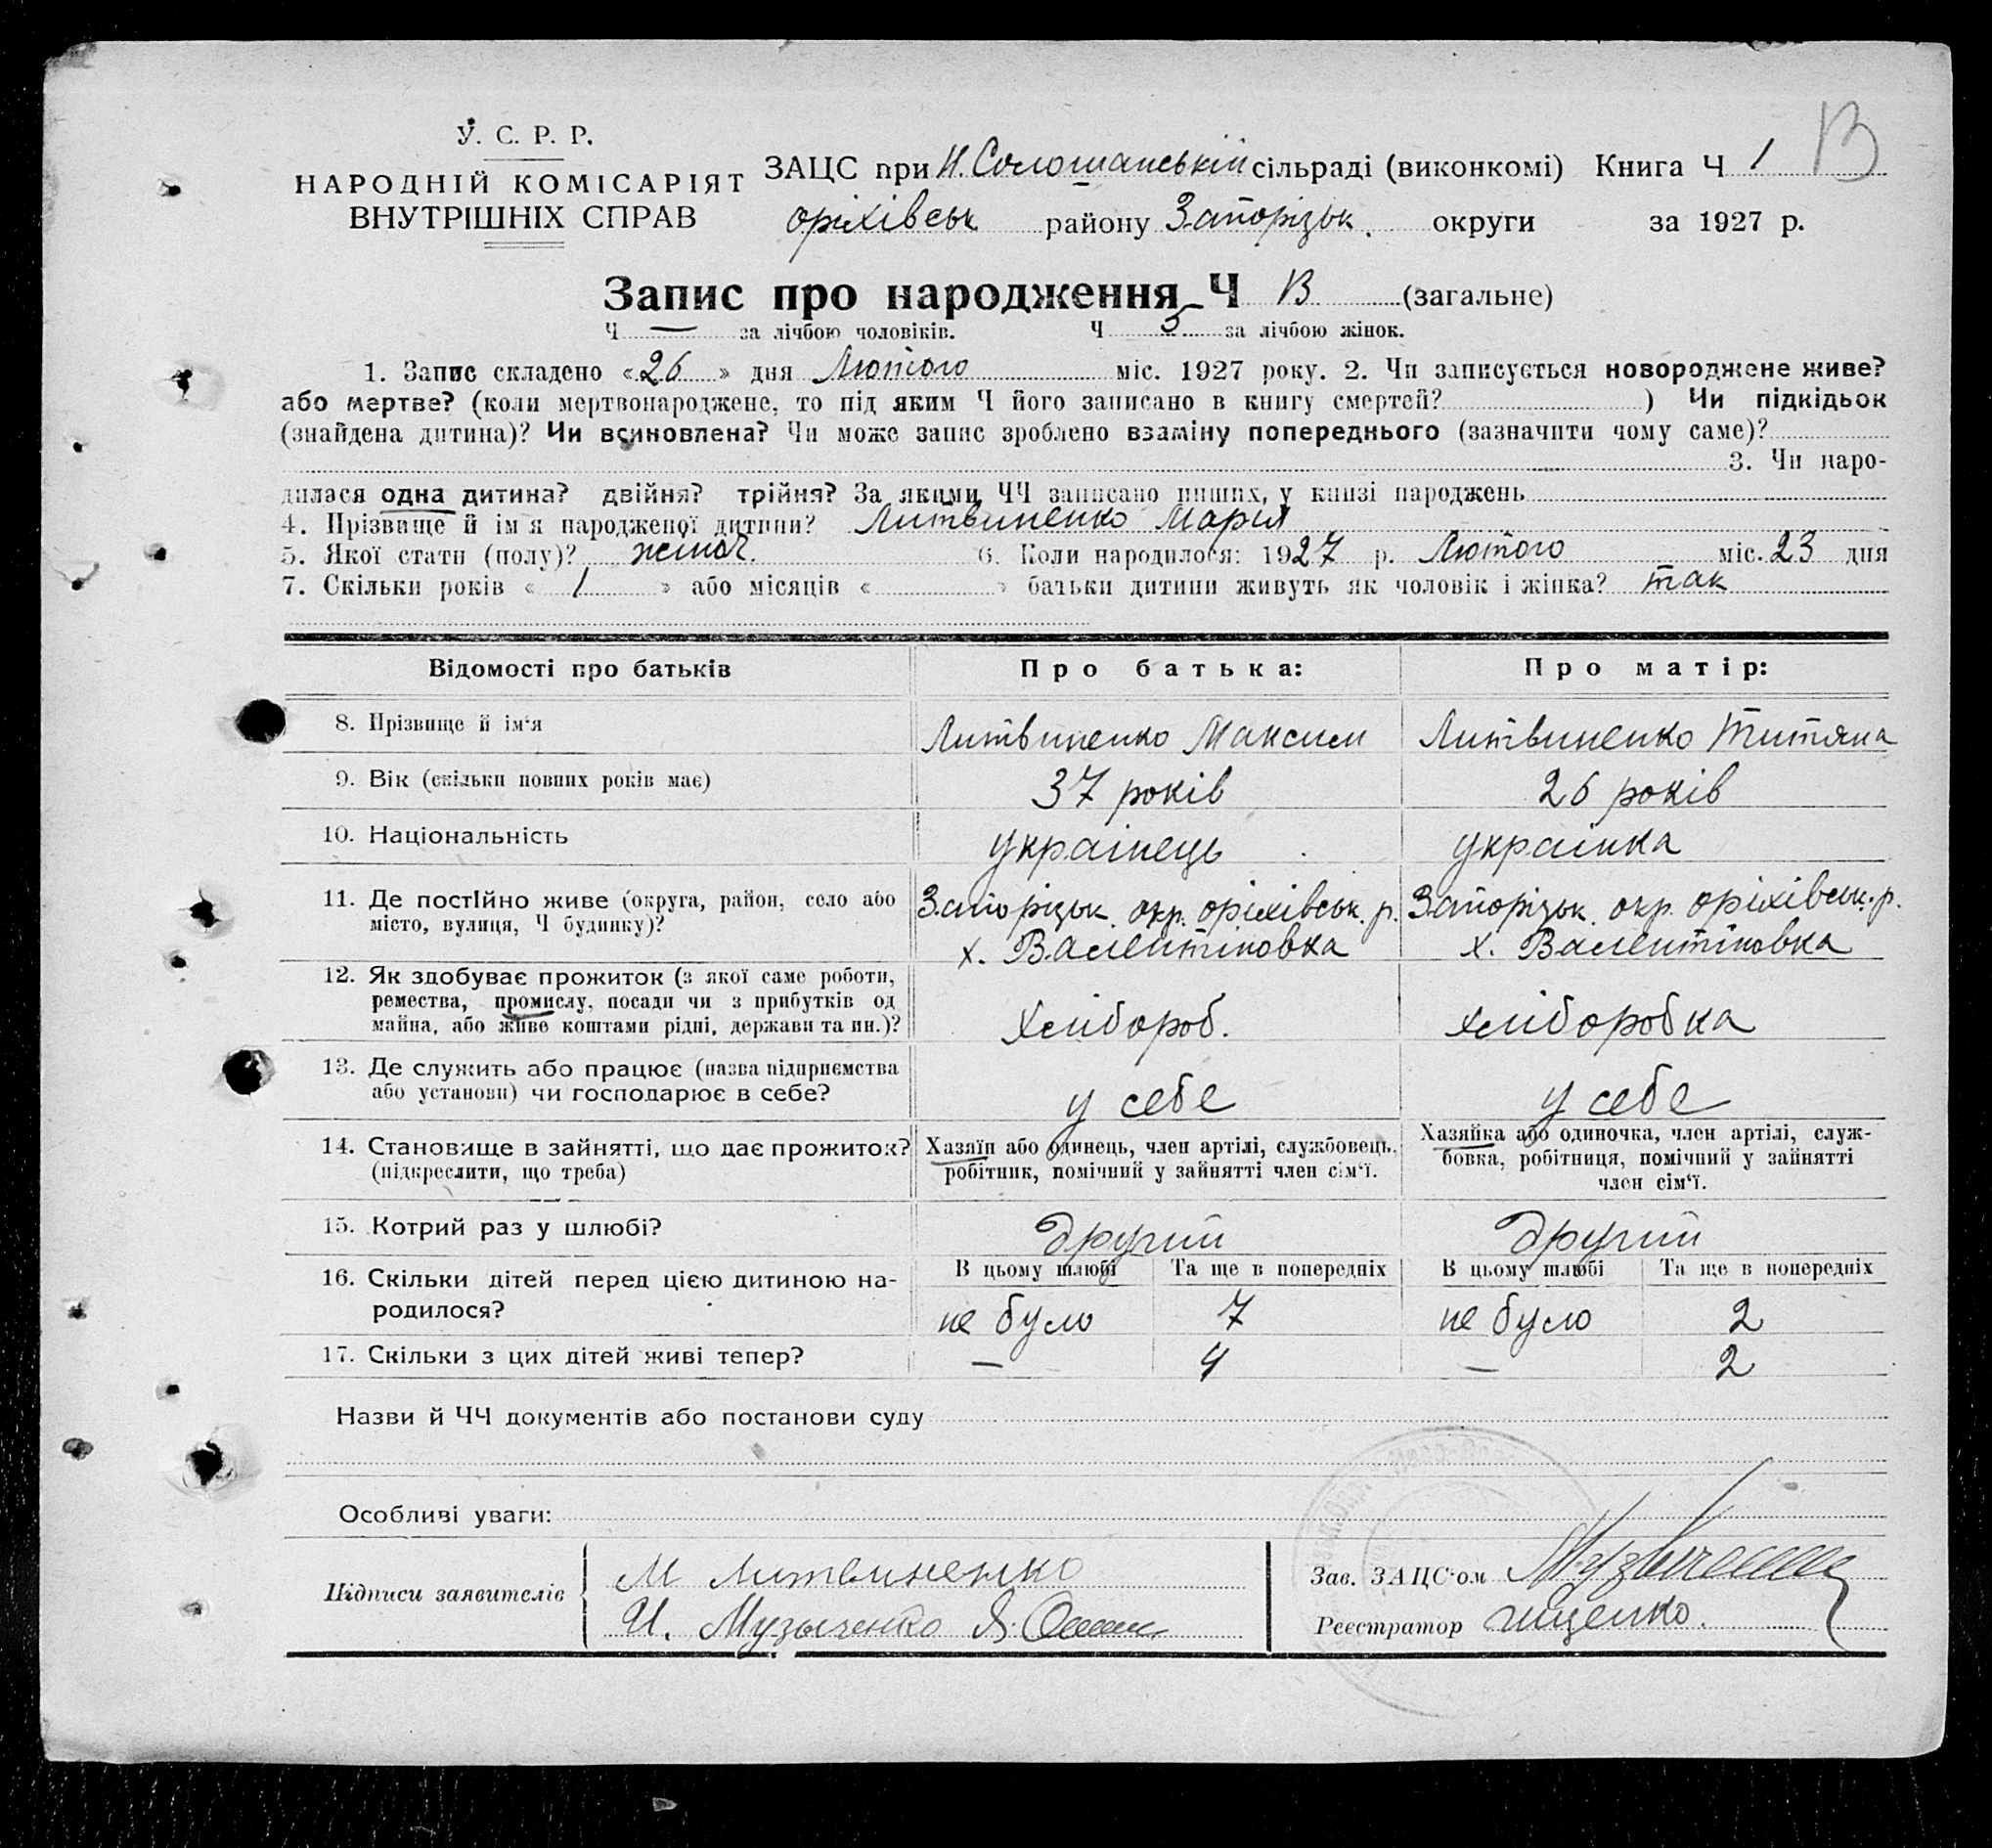 У. С. Р. Р.
НАРОДНІЙ КОМІСАРІЯТ
ВНУТРІШНІХ СПРАВ
ЗАЦС при Н. Солошанській сільраді (виконкомі) Книга Ч 1 13
оріхівськ району Запорізьк. округи за 1927 р.
Запис про народження Ч 13 (загальне)
Ч — за лічбою чоловіків. Ч 5 за лічбою жінок.
1. Запис складено «26» дня Лютого міс. 1927 року. 2. Чи записується новороджене живе?
або мертве? (коли мертвонароджене, то під яким Ч його записано в книгу смертей? ) Чи підкідьок
(знайдена дитина)? Чи всиновлена? Чи може запис зроблено взаміну попереднього (зазначити чому саме)?
3. Чи наро-
дилася одна дитина? двійня? трійня? За якими ЧЧ записано инших, у книзі народжень
4. Прізвище й ім'я народженої дитини? Литвиненко Мария
5. Якої стати (полу)? жіноч. 6. Коли народилося: 1927 р. Лютого міс. 23 дня
7. Скільки років « 1 » або місяців « » батьки дитини живуть як чоловік і жінка? так
Відомості про батьків Про батька: Про матір:
8. Прізвище й ім'я Литвиненко Максим Литвиненко Титяна
9. Вік (скільки повних років має) 37 років 26 років
10. Національність українець українка
11. Де постійно живе (округа, район, село або
місто, вулиця, Ч будинку)?
Запорізьк. окр. оріхівськ. р.
х. Валентіновка
Запорізьк. окр. оріхівськ. р.
х. Валентіновка
12. Як здобуває прожиток (з якої саме роботи,
ремества, промислу, посади чи з прибутків од
майна, або живе коштами рідні, держави та ин.)?
хлібороб. хліборобка
13. Де служить або працює (назва підприємства
або установи) чи господарює в себе?
у себе у себе
14. Становище в зайнятті, що дає прожиток?
(підкреслити, що треба)
Хазяїн або одинець, член артілі, службовець,
робітник, помічний у зайнятті член сім'ї.
Хазяйка або одиночка, член артілі, служ-
бовка, робітниця, помічний у зайнятті
член сім'ї.
15. Котрий раз у шлюбі? другий другий
16. Скільки дітей перед цією дитиною на-
родилося?
В цьому шлюбі Та ще в попередніх В цьому шлюбі Та ще в попередніх
не було 7 не було 2
17. Скільки з цих дітей живі тепер? — 4 — 2
Назви й ЧЧ документів або постанови суду
Особливі уваги:
Підписи заявителів
М Литвиненко
И. Музыченко Я.
Зав. ЗАЦС'ом
Реєстратор